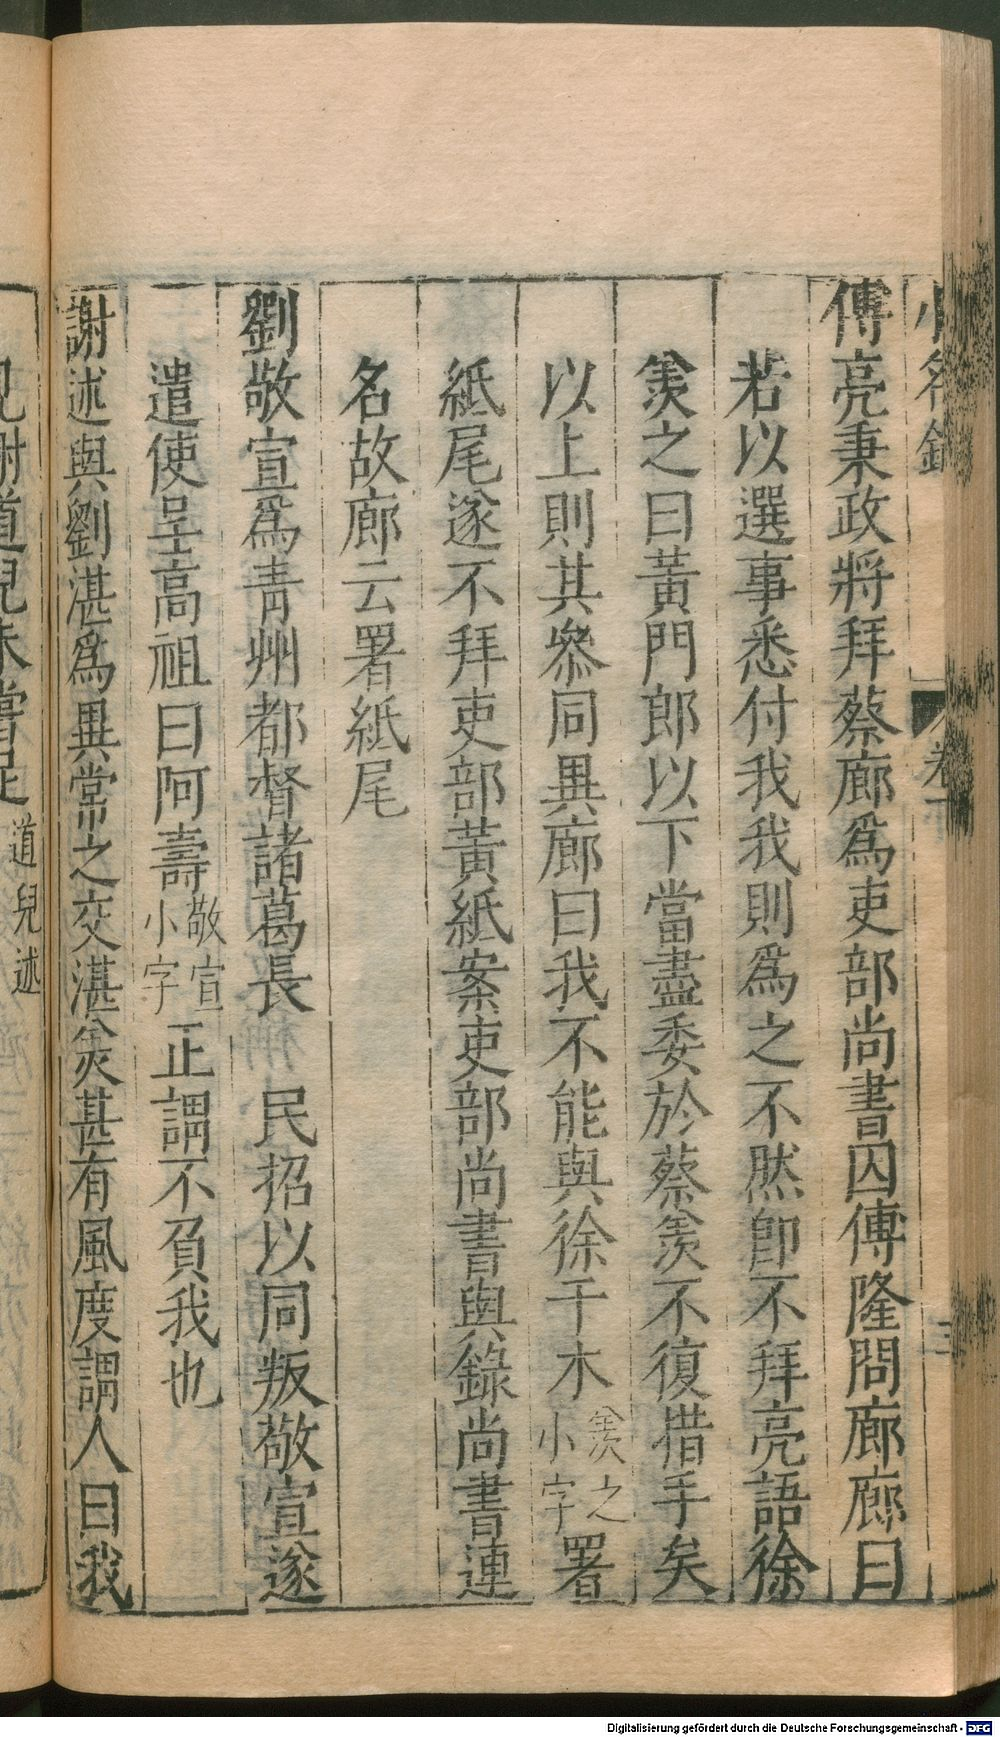 小名錄 卷下 三
傅亮秉政將拜蔡廊爲吏部尚書囚傅隆問廊廊曰
若以選事悉付我我則爲之不然卽不拜亮語徐
羨之曰黃門郎以下當盡委於蔡羨不復措手矣
以上則其叅同異廊曰我不能與徐干木羨之小字署
紙尾遂不拜吏部黃紙案吏部尚書與錄尚書連
名故廊云署紙尾
劉敬宣爲青州都督諸葛長 民招以同叛敬宣遂
遣使呈高祖曰阿壽敬宣小字正謂不負我也
謝述與劉湛爲異常之交湛美甚有風度謂人曰我
見謝道兒未嘗足道兒述
Digitalisierung gefördert durch die Deutsche Forschungsgemeinschaft - DFG